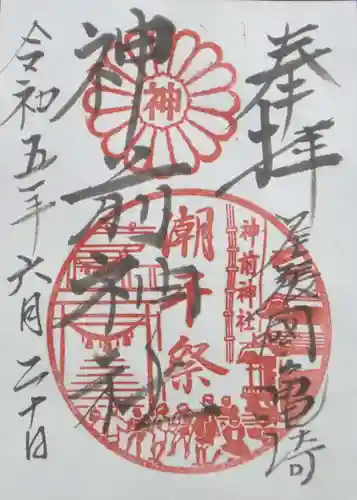 奉拝
尾張國亀崎
神前神社
令和五年六月二十日
神
潮干祭
神前神社